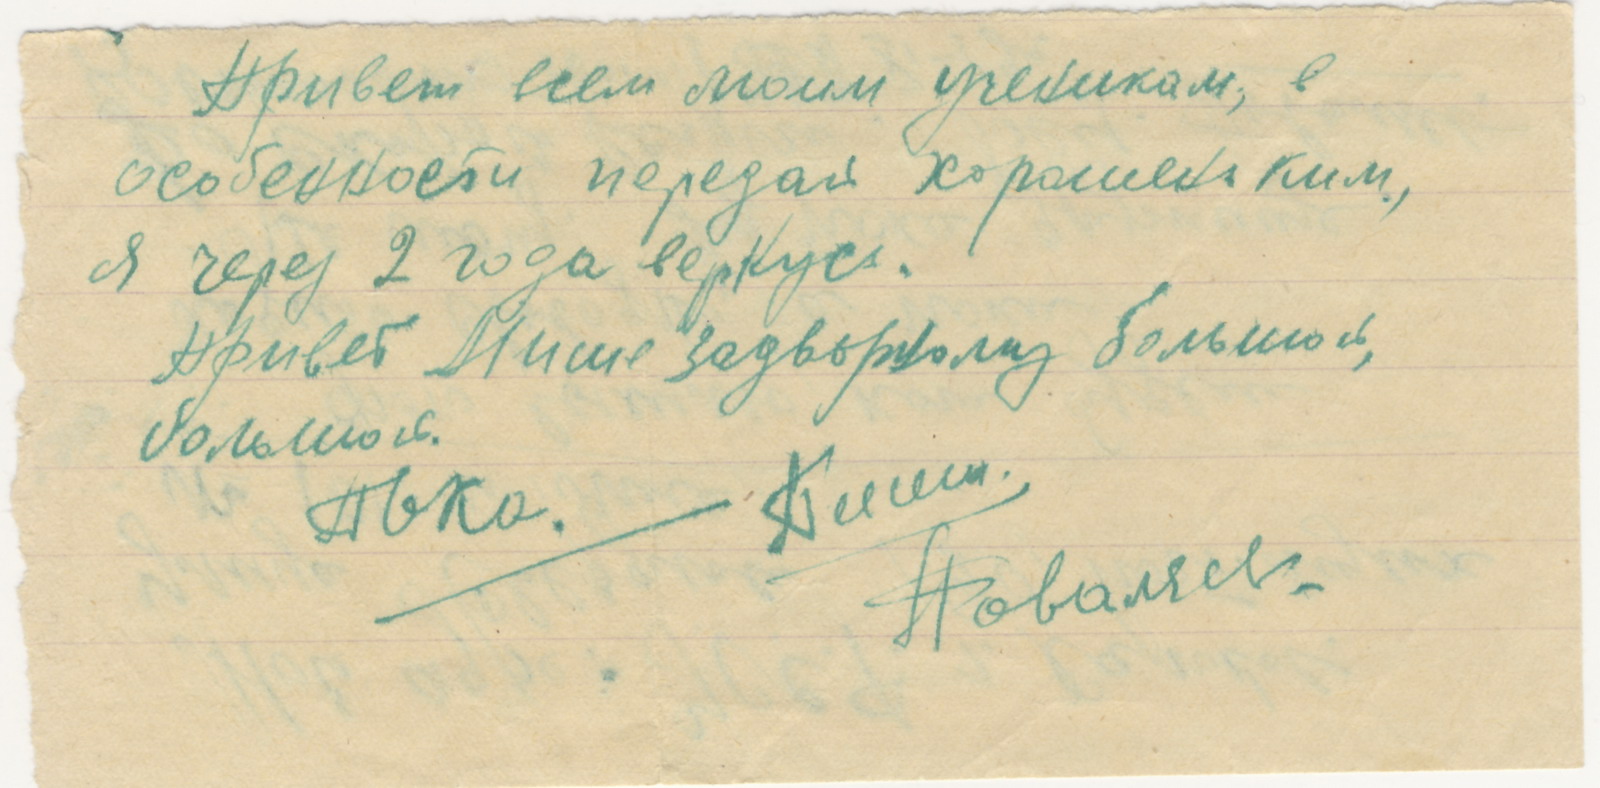 Привет всем моим ученикам, в
особенности передай хорошеньким,
я через 2 года вернусь.
Привет Мише Задворному большой,
большой.
Пока. Пиши.